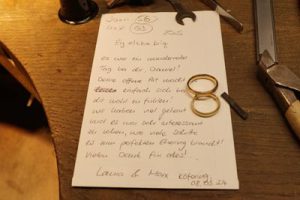 56
53
es war ein wundervoller
Tag bei dir, Daniel!
Deine offene Art macht
es einfach sich bei
dir wohl zu fühlen.
wir haben viel gelernt
und es war sehr interessant
zu sehen, wie viele Schritte
es zum perfekten Ehering braucht!
Vielen Dank für alles!
Laura & Max